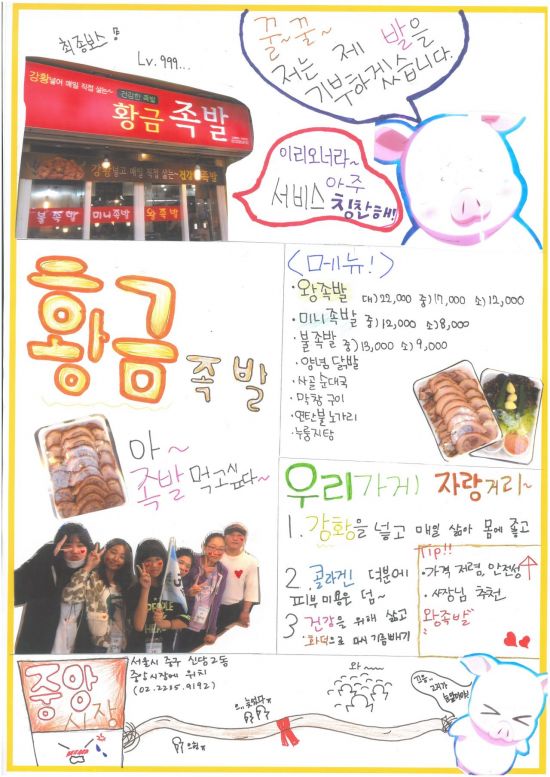 최종보스 몽
Lv.999...
꿀~꿀~
저는 제 발을
기부하겠습니다.
강황넣어 매일 직접 삶는~
건강한 족발
황금 족발
강황넣고 매일 직접 삶는~건강족발
불족발 미니족발 왕족발
이리오너라~
서비스 아주
칭찬해!
황금
족발
아~
족발 먹고싶다~
<메뉴!>
·왕족발 대)22,000 중)17,000 소)12,000
·미니족발 중)12,000 소)8,000
·불족발 중)13,000 소)9,000
·양념 닭발
·사골 순대국
·막창 구이
·연탄불 노가리
·누룽지탕
우리가게! 자랑거리~
1. 강황을 넣고 매일 삶아 몸에 좋고
2. 콜라겐 덕분에
피부미용은 덤~
3 건강을 위해 삶고
화덕으로 다시 기름빼기
Tip!!
·가격 저렴, 안전성
·사장님 추천
"왕족발"
중앙
시장
서울시 중구 신당2동
중앙시장에 위치
(02.2235.9192)
와~~~